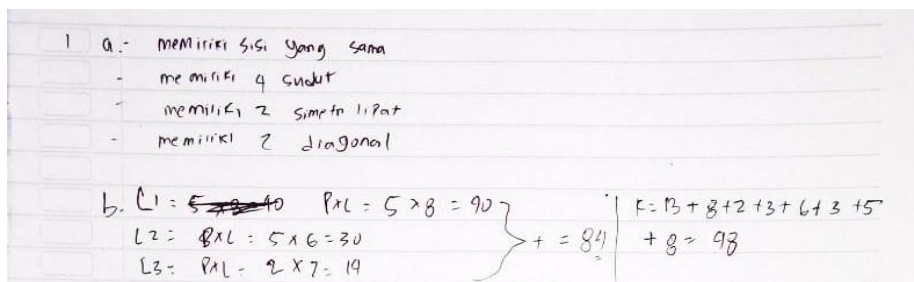 1 a.- memiliki sisi yang sama
- memiliki 4 sudut
- memiliki 2 simetri lipat
- memiliki 2 diagonal
b. L1 : P×L = 5 × 8 = 40
L2 : P×L = 5 × 6 = 30
L3 = P×L = 2 × 7 = 14
+ = 84
K = 13 + 8 + 2 + 3 + 6 + 3 + 5
+ 8 = 48